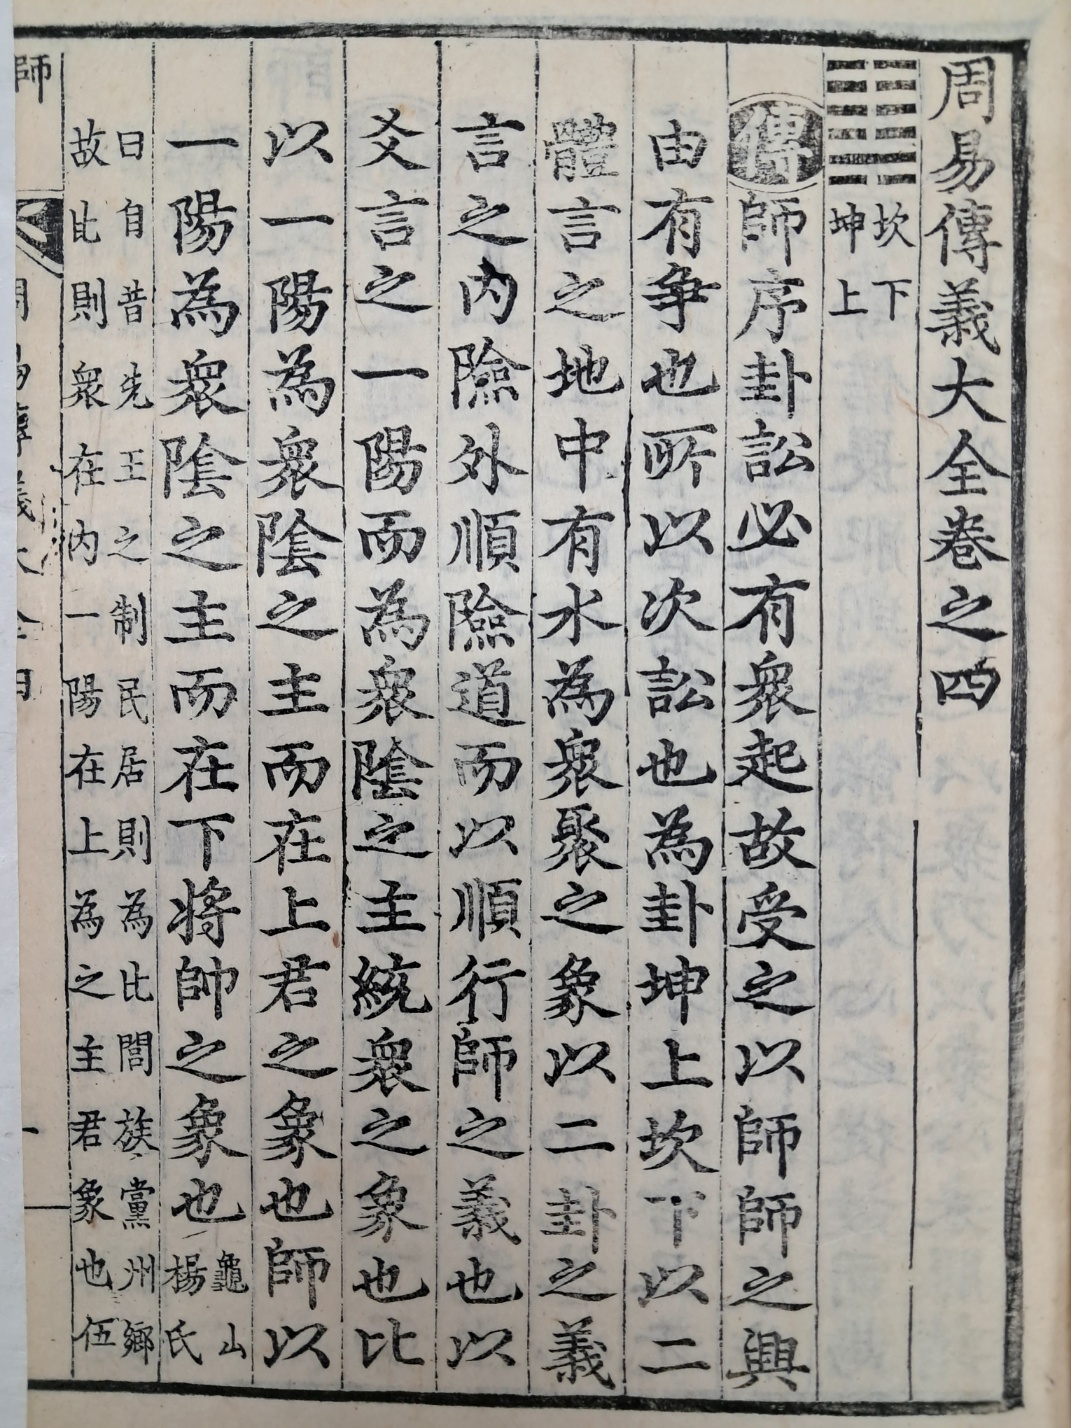 周易傳義大全卷之四
坎下
坤上
傳師序卦訟必有衆起故受之以師師之興
由有爭也所以次訟也為卦坤上坎下以二
體言之地中有水為衆聚之象以二卦之義
言之內險外順險道而以順行師之義也以
爻言之一陽而為衆陰之主統衆之象也比
以一陽為衆陰之主而在上君之象也師以
一陽為衆陰之主而在下將帥之象也龜山
楊氏
曰自昔先王之制民居則為比閭族黨州鄉
故比則衆在內一陽在上為之主君象也伍
師